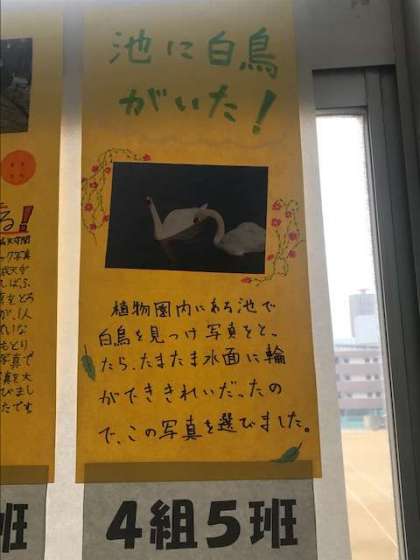 池に白鳥
がいた!
植物園内にある池で
白鳥を見つけ写真をとっ
たら、たまたま水面に輪
ができきれいだったの
で、この写真を選びました。
4組5班
る!
写真
1人
もとり
写真で
真を大
びまし
たです
班